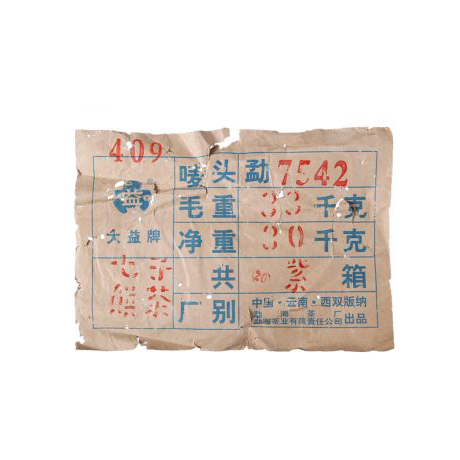 409
唛头 勐7542
益
毛重 33千克
大益牌 净重 30千克
七子 共 紫 箱
饼茶 厂别 中国·云南·西双版纳
勐海茶厂
勐海茶业有限责任公司 出品